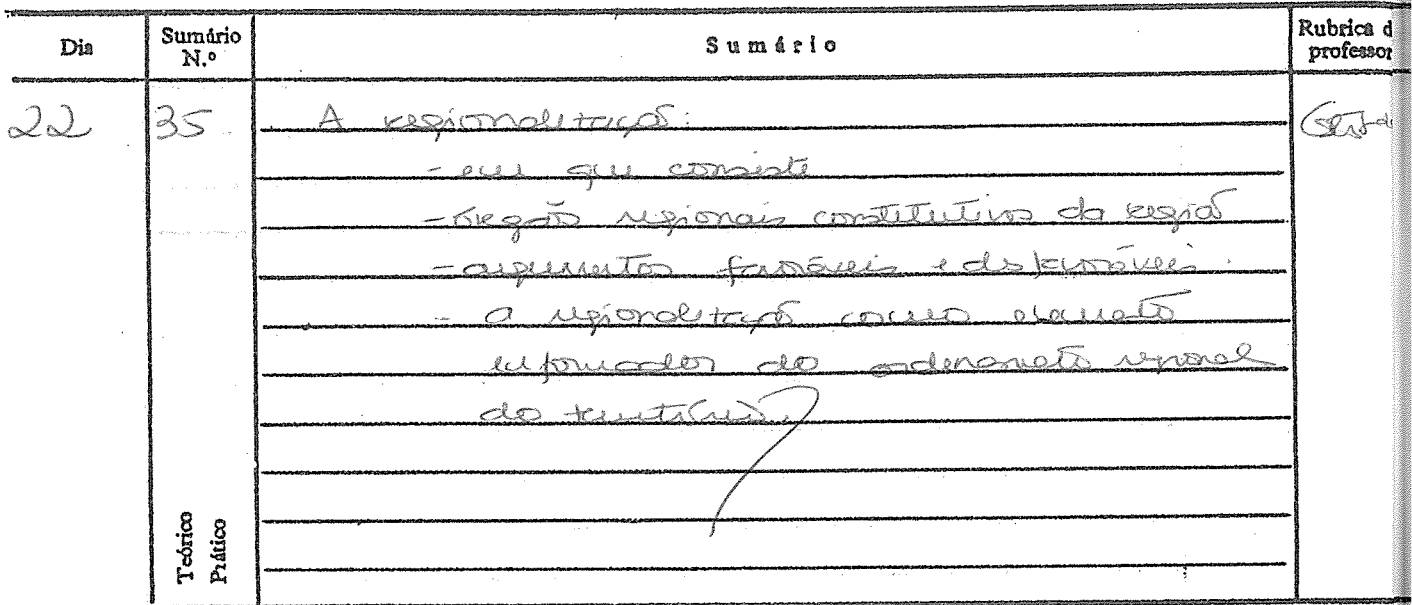 Dia Sumário N.º Sumário Rubrica d professor
22 35 A regionalização:
- em que consiste
- órgãos regionais constitutivos da região
- argumentos favoráveis e desfavoráveis.
- a regionalização como elemento
enformador do ordenamento regional
do território.
Teórico
Prático